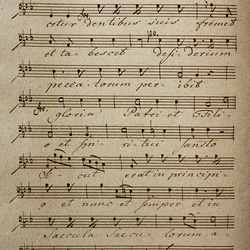 cetur dentibus suis fremet
et tabescet desiderium
peccatorum peribit
gloria Patri et Fili-
o et spiritui sancto
Sicut erat in principi-
o et nunc et semper et in
Saecula Saeculorum a-